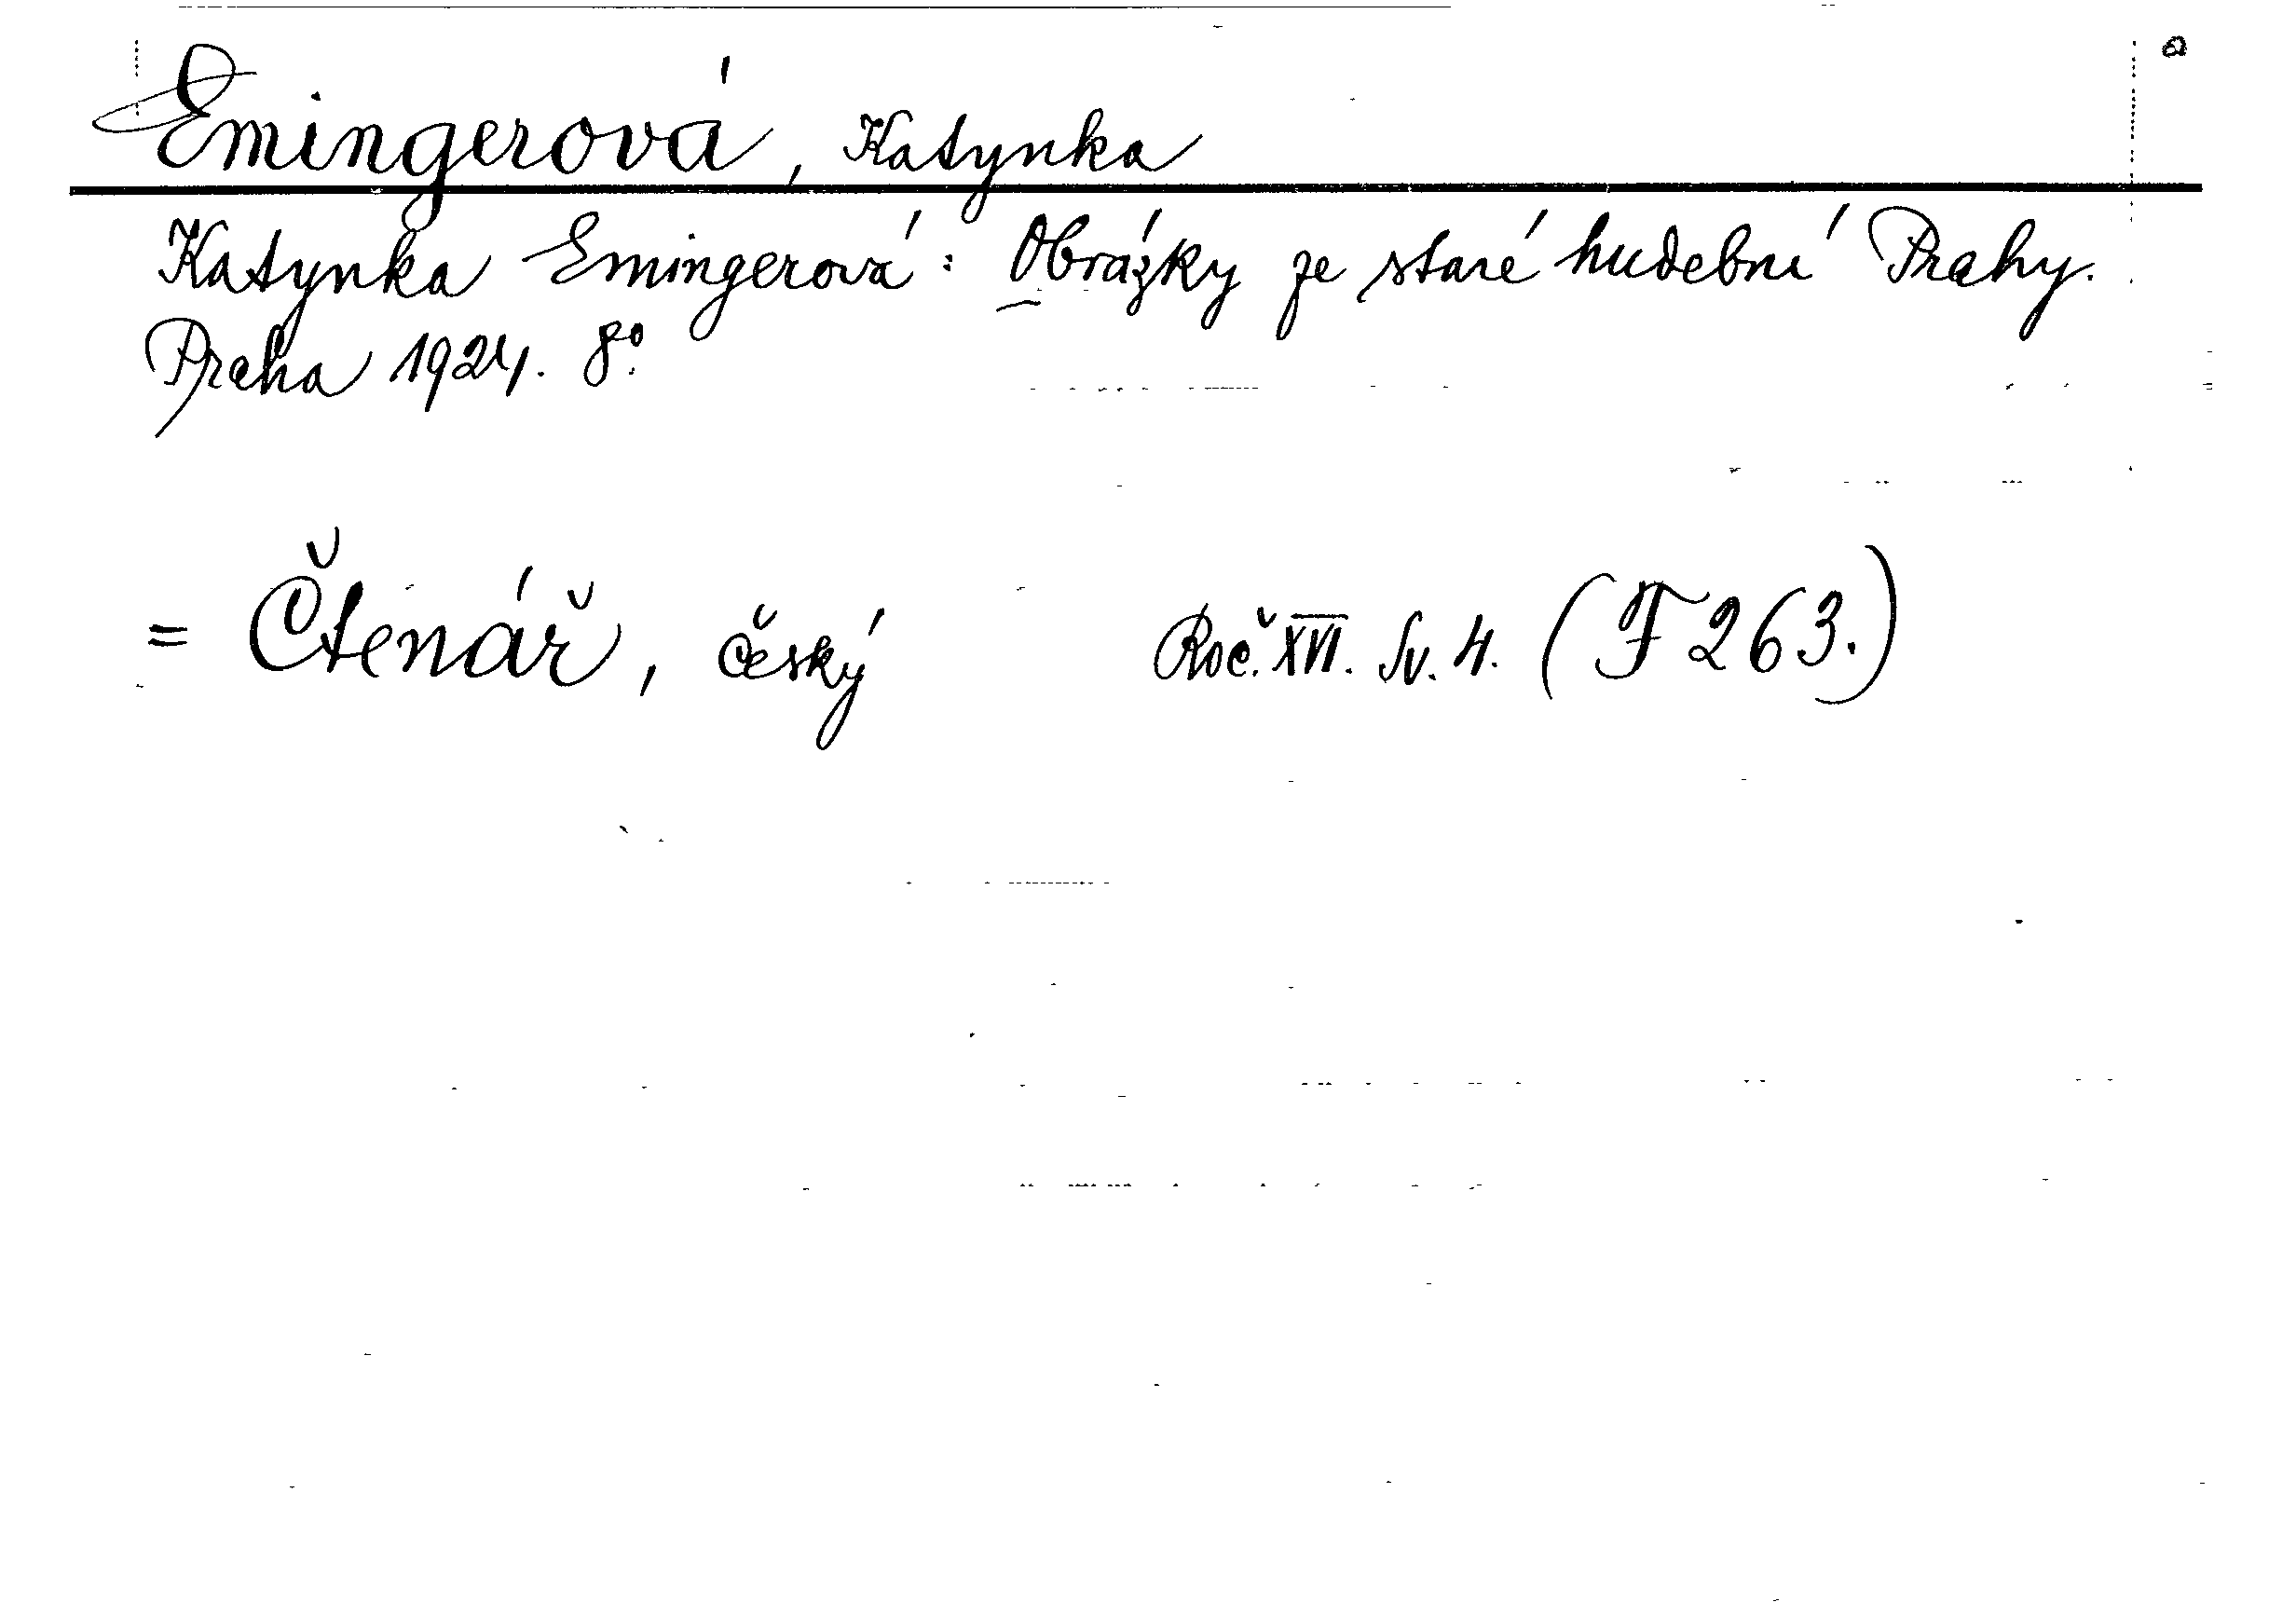 Emingerová, Katynka
Katynka Emingerová: Obrázky ze staré hudební Prahy.
Praha 1924. 8°.
= Čtenář, český Roč. XVI. Sv. 4. (F 263.)